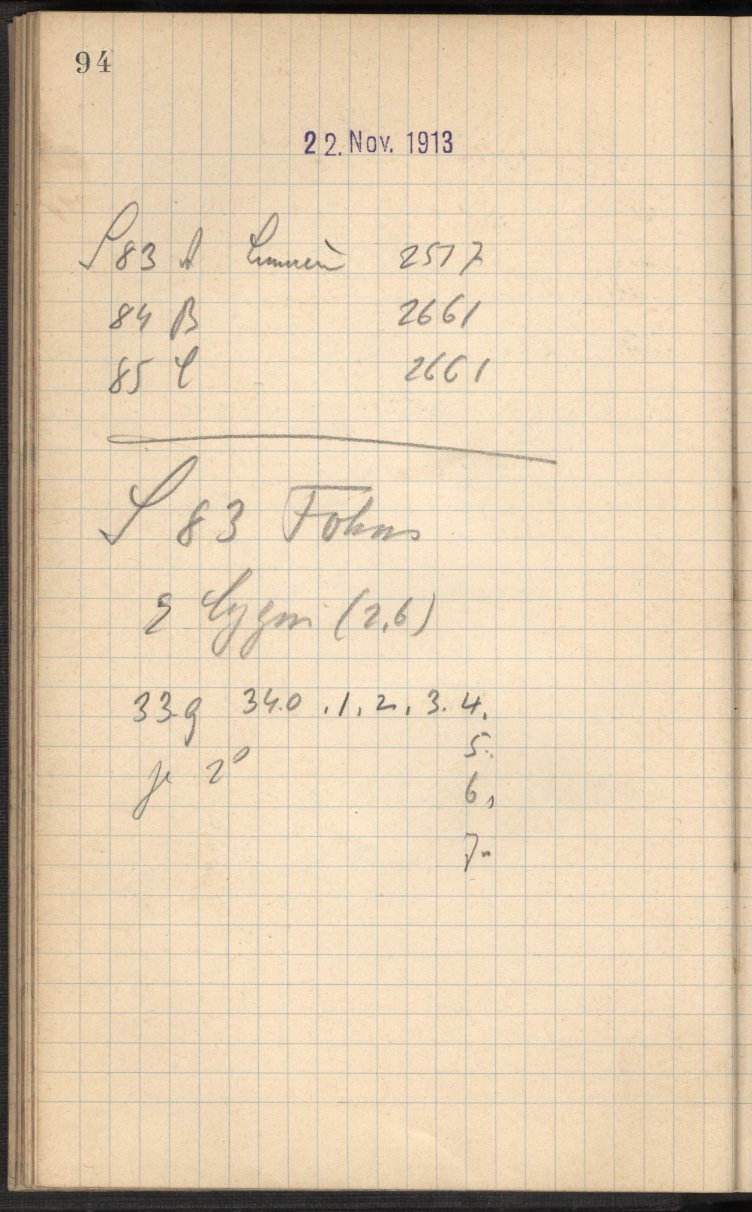 94
22. Nov. 1913
S 83 A Lumière 2517
84 B 2661
85 C 2661
S 83 Fokus
Cygni (2,6)
33.9 34.0 .1. 2. 3. 4.
5.
je 2⁰
6.
7.